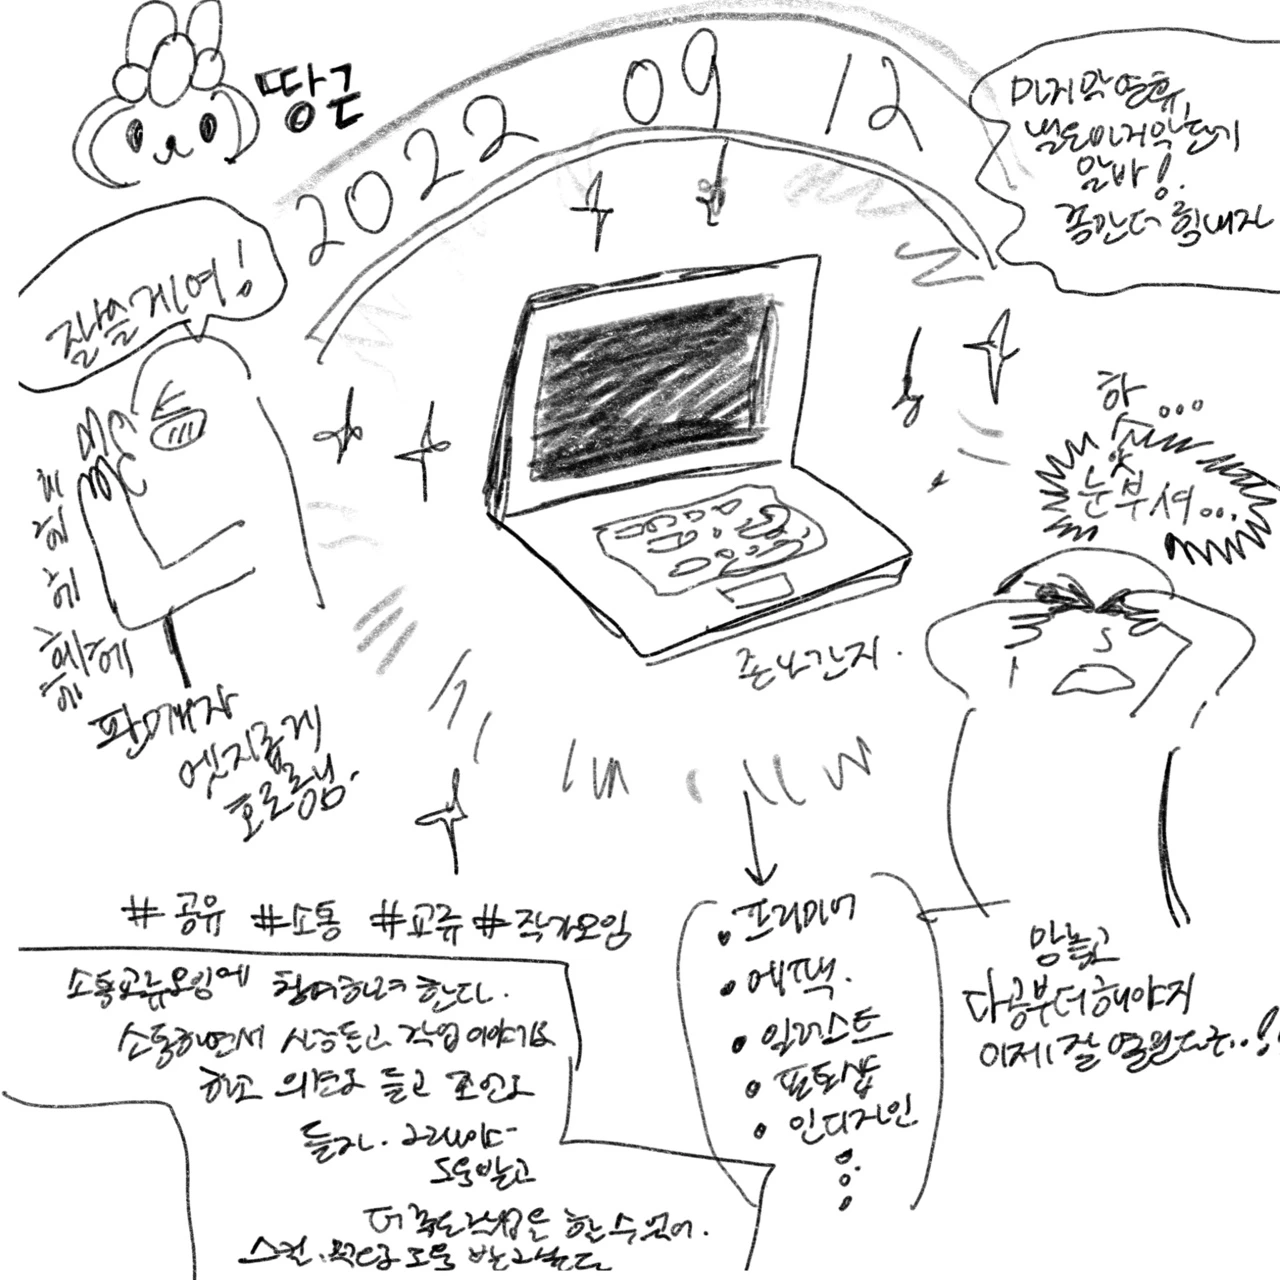 땅근
2022 09 12
마지막 연휴,
알바!
좀만더 힘내자
잘쓸게여!
헤
헤
헤
헤헤
헤
하...
앗
눈부셔...
존나간지.
판매자
엣지롭게
흐르륵님.
#공유 #소통 #교류 #작가모임
소통교류모임에 참여하려 한다.
소통하면서 시중들고 작업이야기도
하고 의견도 듣고 조언도
듣자. 그래야
도움받고
더 작업은 할수없어.
스킬. 도움 받고싶다
• 프리미어
• 에팩.
• 일러스트
• 포토샵
• 인디자인
맘놓고
다공부더해야지
이제 잘 열린다구..!!